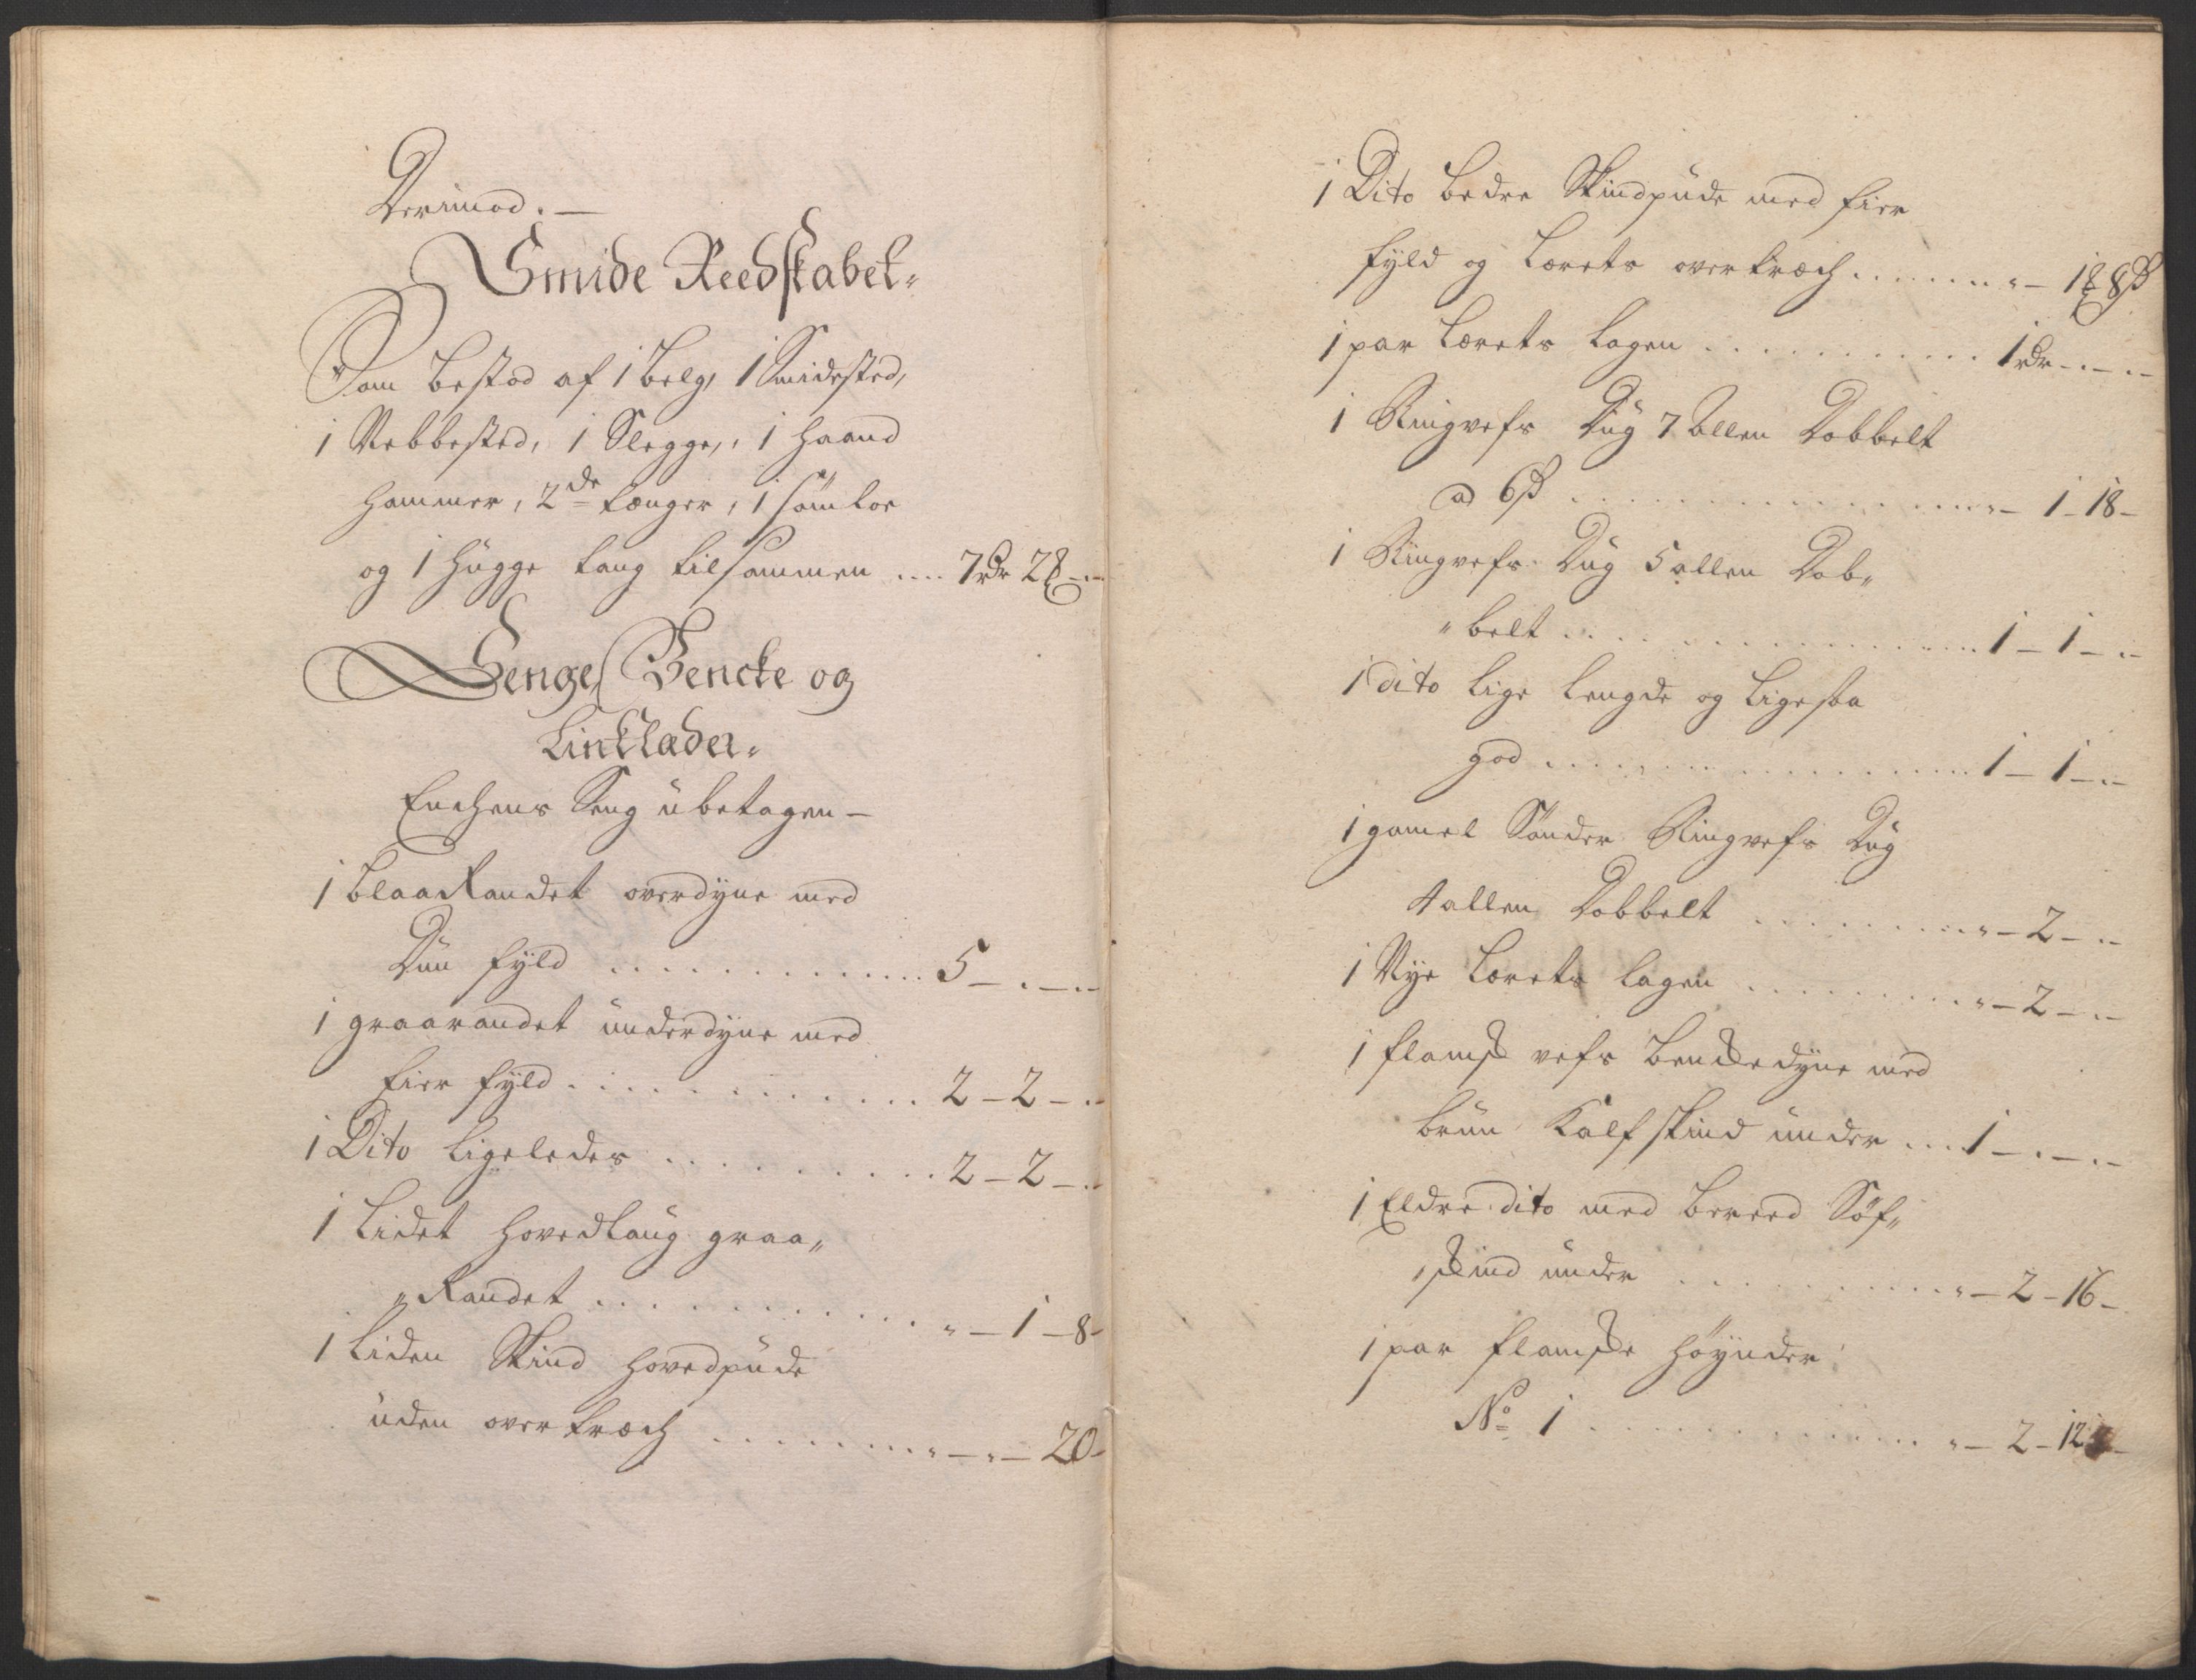 Derimod. —
Smide Reedskabet„
Som bestod af 1 belg, 1 Smidested,
1 Nebbested, 1 Slegge, 1 haand
hammer, 2de tænger, 1 sömloe
og 1 hugge tang tilsammen .... 7 rdr 2 ℥ - . -
Senge Bencke og
Linklæder„
Enchens Seng ubetagen —
1 blaaRandet overdyne med
Dun fyld . . . . . . . . . . . . 5 – . – . –
1 graarandet underdyne med
fier fyld . . . . . . . . . . . . 2 – 2 – . –
1 Dito ligeledes . . . . . . . . . 2 – 2 – . –
1 Lidet hovedlaug graa„
„Randet . . . . . . . . . . . . „ – 1 – 8 –
1 Liden Skind hovedpude
uden overtræch . . . . . . . . „ – „ – 20 –
1 Dito bedre Skindpude med fier
fyld og Lærets overtræch . . . . . . „ – 1 ℥ 8 ß
1 par Lærets lagen . . . . . . . . . . 1 rdr - . – . –
1 Ringvefs Dug 7 allen Dobbelt
a 6 ß . . . . . . . . . . . . „ – 1 – 18 –
1 Ringvefs Dug 5 allen Dob„
„belt . . . . . . . . . . . . . 1 – 1 – . –
1 dito lige lengde og ligesaa
god . . . . . . . . . . . . . 1 – 1 – . –
1 gamel Sönder Ringvefs Dug
4 allen Dobbelt . . . . . . . . „ – 2 – . –
1 Nye Lærets lagen . . . . . . . . „ – 2 – . –
1 flamsk vefs benckedyne med
brun Kalfskind under . . . 1 – . – . –
1 Eldre dito med bereed Söf„
„skind under . . . . . . . . . „ – 2 – 16 –
1 par flamske höynder
No 1 . . . . . . . . . . . . . „ – 2 – 12 –